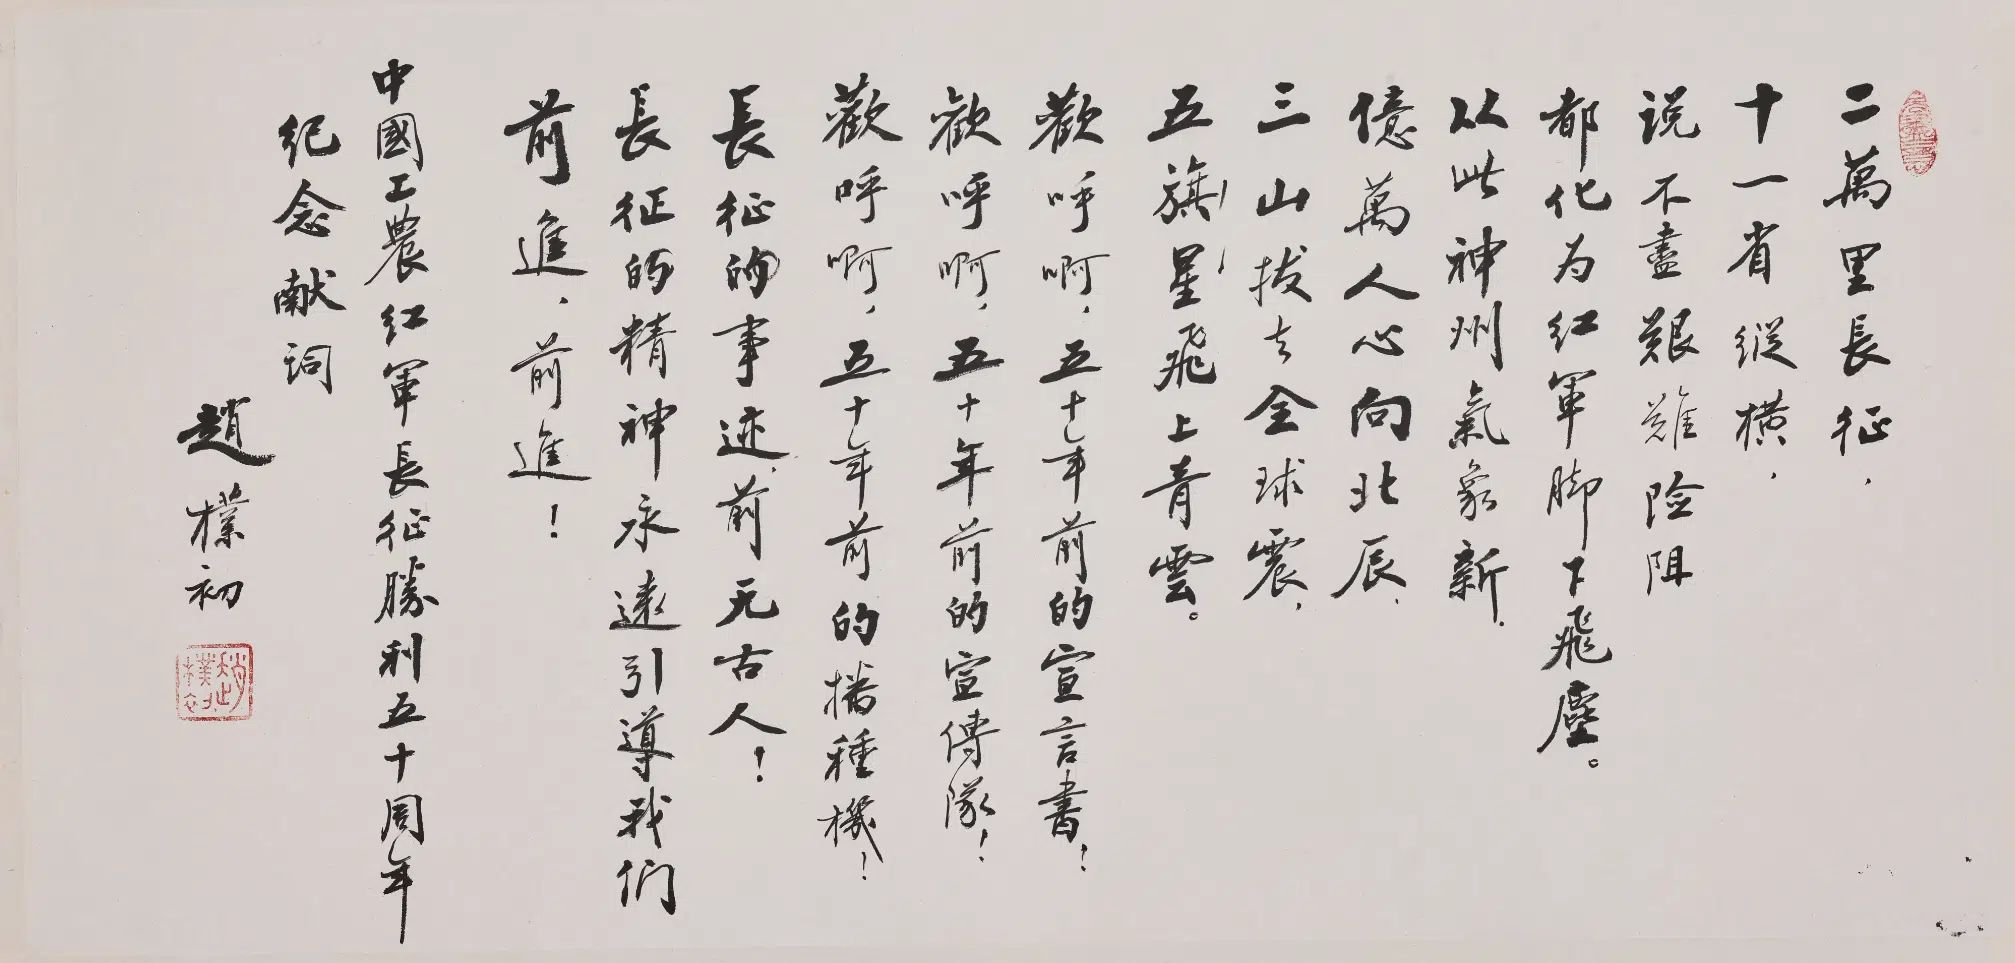 二萬里長征，
十一省縱横，
说不盡艱難险阻
都化为红軍脚下飛塵。
从此神州氣象新，
億萬人心向北辰，
三山拔去全球震，
五旗星飛上青雲。
歡呼啊，五十年前的宣言書！
歡呼啊，五十年前的宣傳隊！
歡呼啊，五十年前的播種機！
長征的事迹，前无古人！
長征的精神永遠引導我们
前進、前進！
中國工農红軍長征勝利五十周年
纪念献词
趙樸初
趙樸初